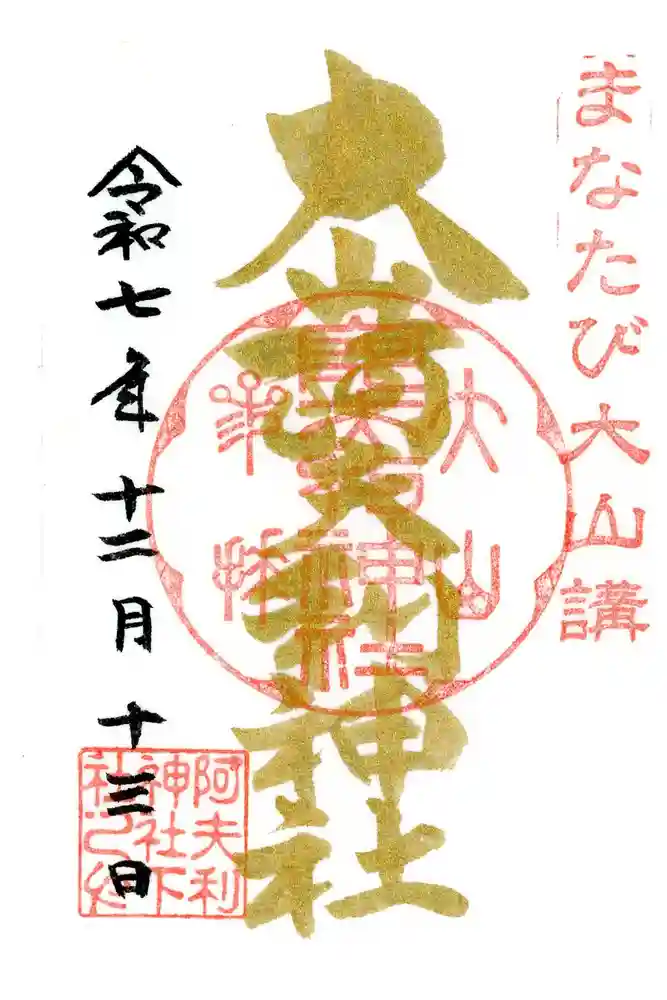 まなたび大山講
大山阿夫利神社
令和七年 十二月 十三日
阿夫利
神社下
社之印